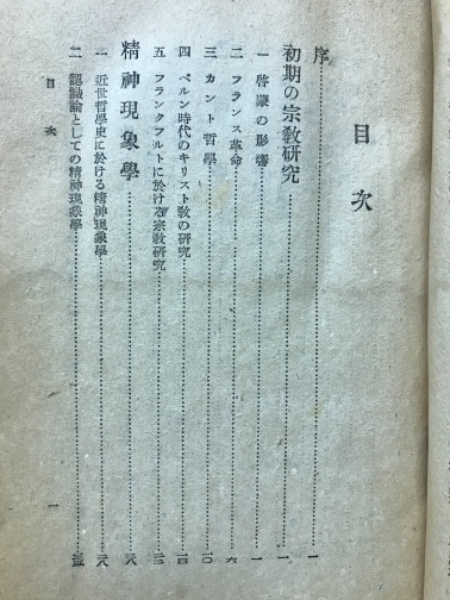 目次
序……一
初期の宗敎硏究……一
一 啓蒙の影響……一
二 フランス革命……六
三 カント哲學……一〇
四 ベルン時代のキリスト敎の硏究……一四
五 フランクフルトに於ける宗敎硏究……二三
精神現象學……二八
一 近世哲學史に於ける精神現象學……二八
二 認識論としての精神現象學
目次
一